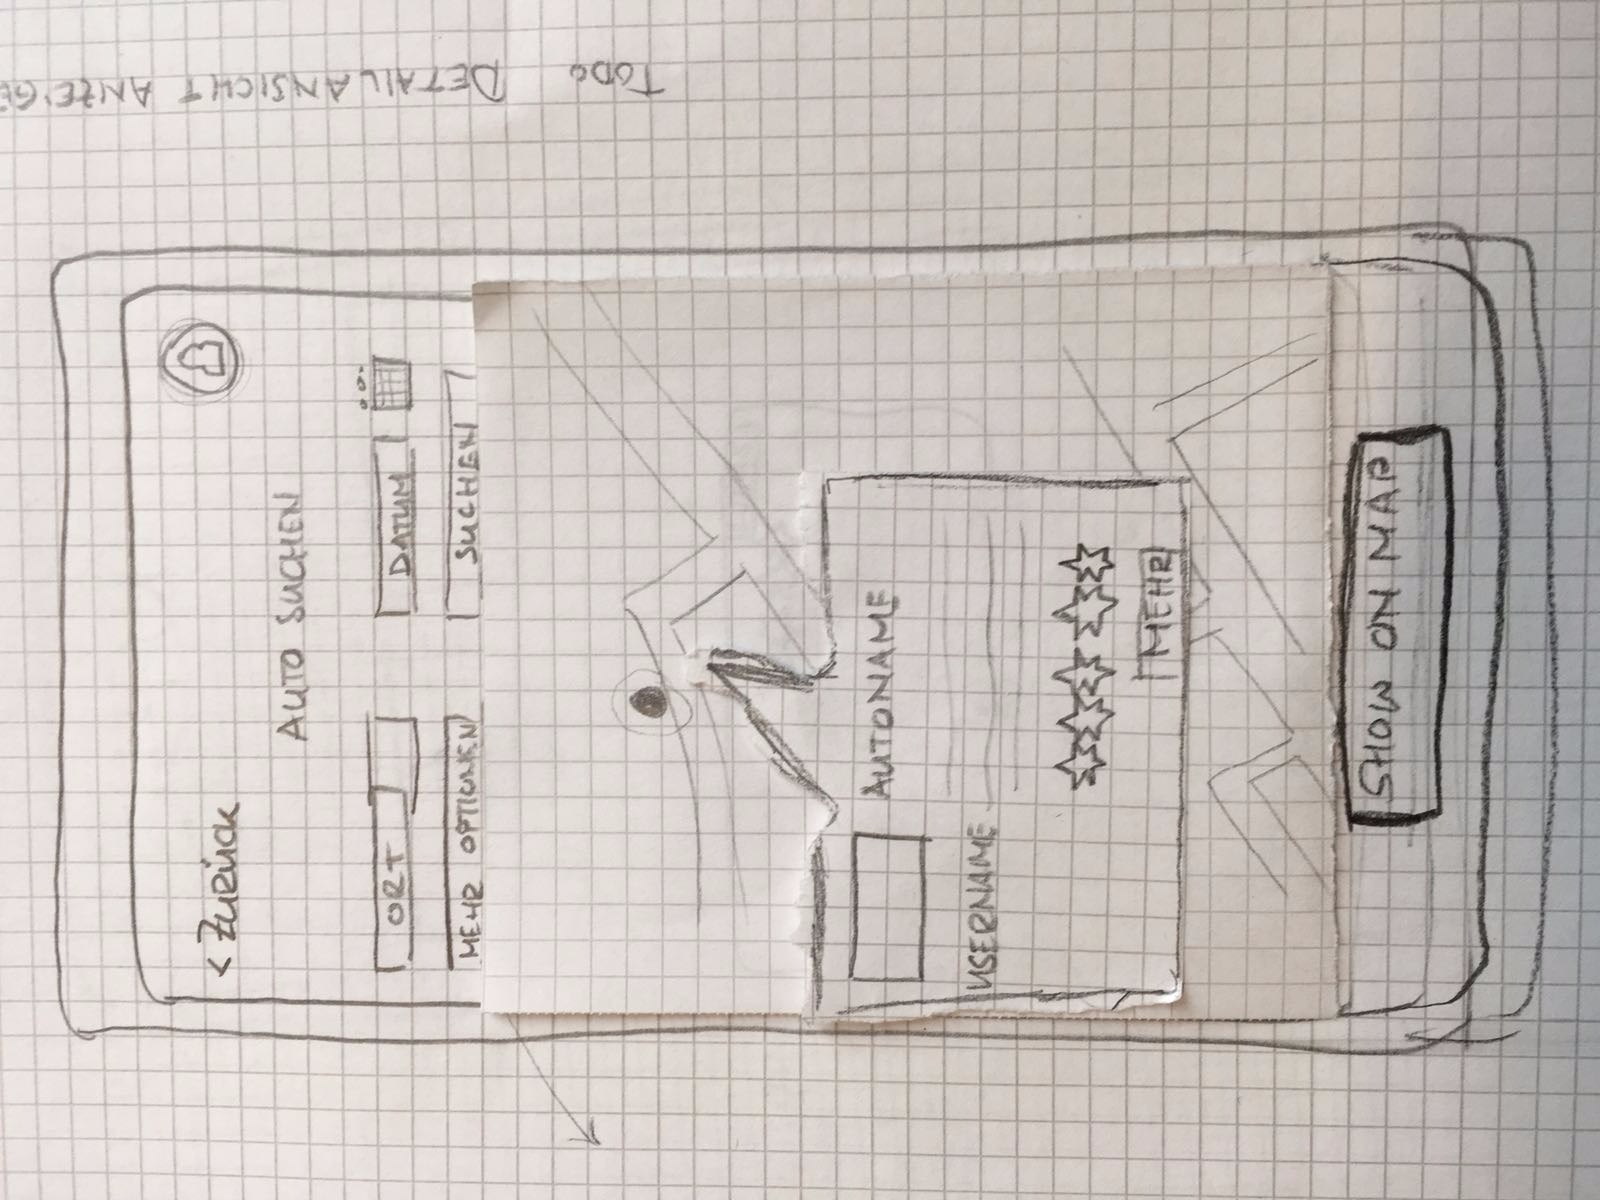 TODO DETAILANSICHT ANZEIGE
< ZURÜCK
AUTO SUCHEN
ORT DATUM
MEHR OPTIONEN SUCHEN
AUTONAME
USERNAME
MEHR
SHOW ON MAP